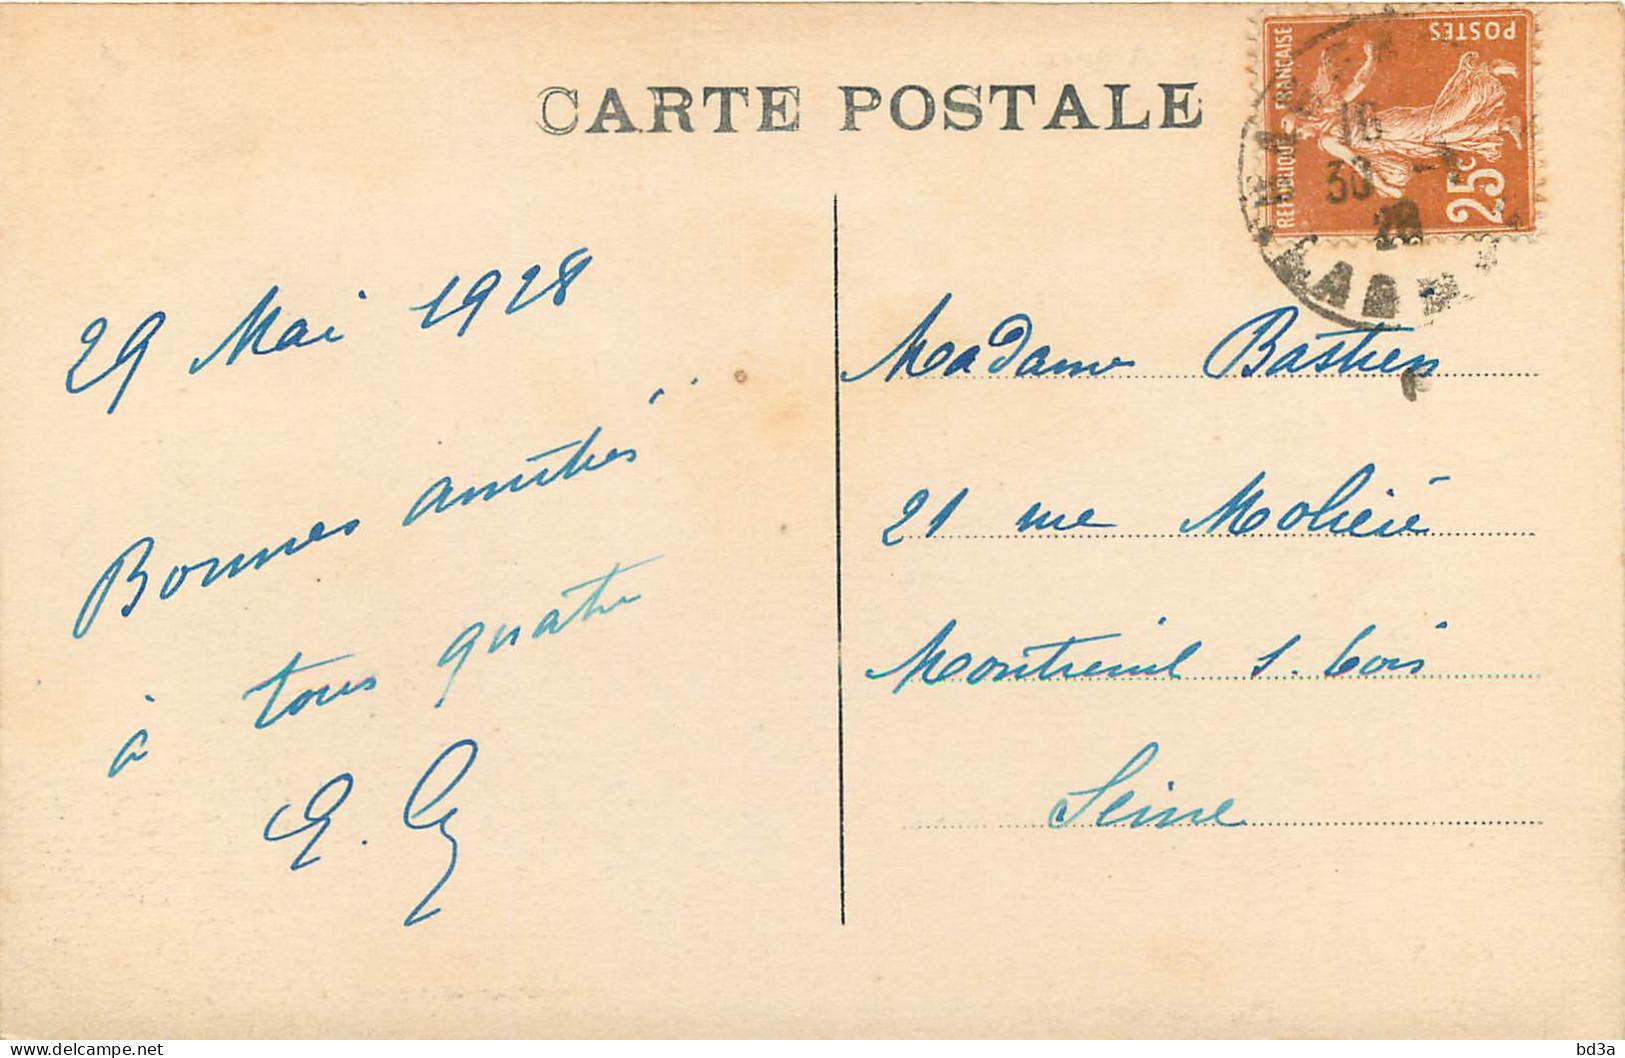 CARTE POSTALE
REPUBLIQUE FRANÇAISE
POSTES
25c
16
30
28
29 Mai 1928
Bonnes amitiés
à tous quatre
Madame Bastien
21 rue Molière
Montreuil s. bois
Seine
bd3a